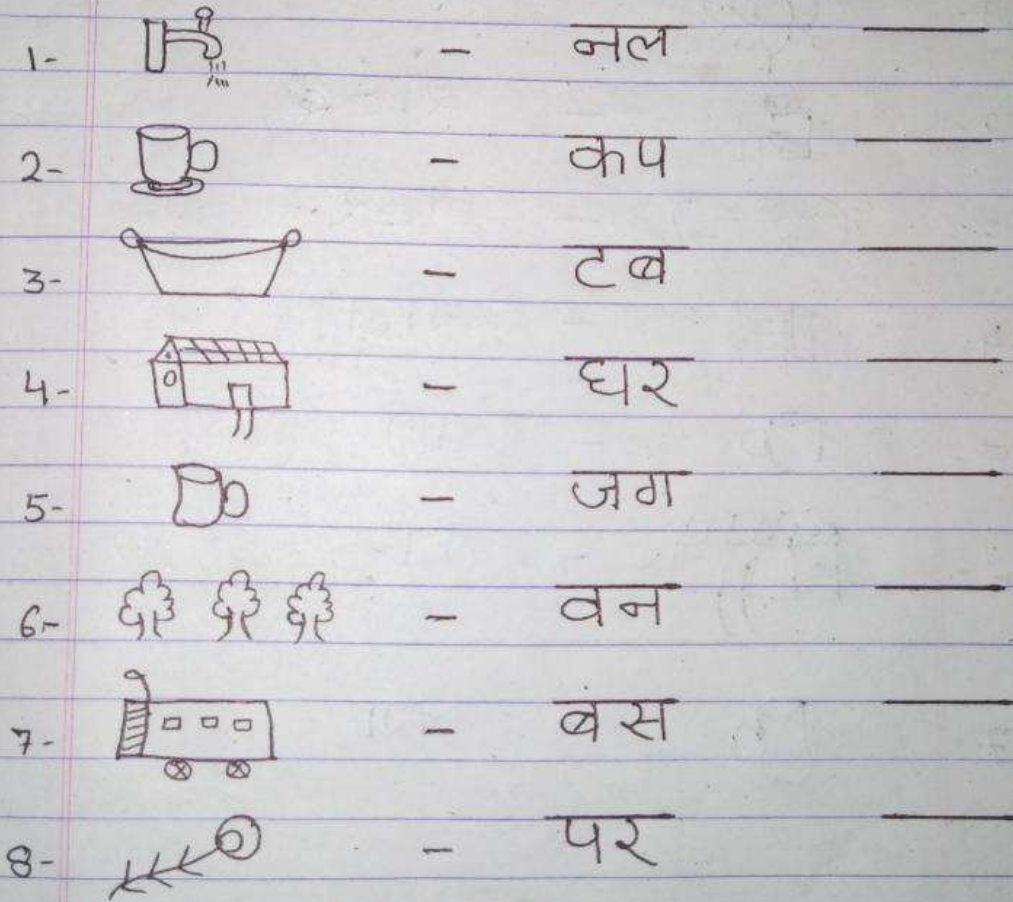 1- - नल
2- - कप
3- - टब
4- - घर
5- - जग
6- - वन
7- - बस
8- - पर